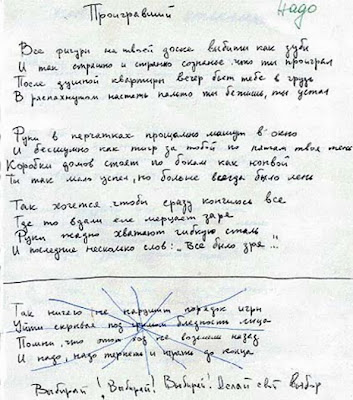 Проигравший
Надо
Все фигуры на твоей доске выбиты как зубы
И так страшно и странно сознание, что ты проиграл
После душной квартиры ветер бьет тебе в грудь
В распахнутом настежь пальто ты бежишь, ты устал
Руки в перчатках прощально машут в окно
И бесшумно как тигр за тобой по пятам твоя тень
Коробки домов стоят по бокам как конвой
Ты так мало успел, но больше всегда было лень
Так хочется чтобы сразу кончилось все
Где то вдали еле мерцает заря
Руки жадно хватают гибкую сталь
И последние несколько слов: „Все было зря..."
Так ничего не нарушит порядок игры
Уйти скрывая под гримом бледность лица
Помни, что этот ход не возьмешь назад
И надо, надо терпеть и играть до конца
Выбирай! Выбирай! Выбирай! Делай свой выбор